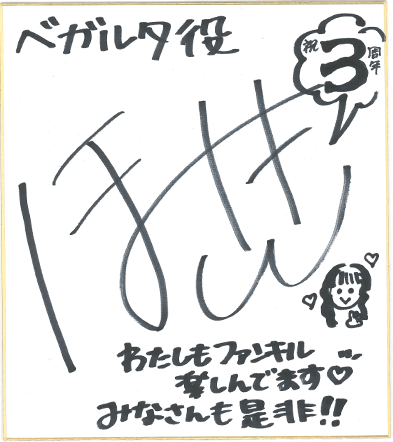 ベガルタ役
祝3周年
わたしもファンキル
楽しんでます♡
みなさんも是非!!